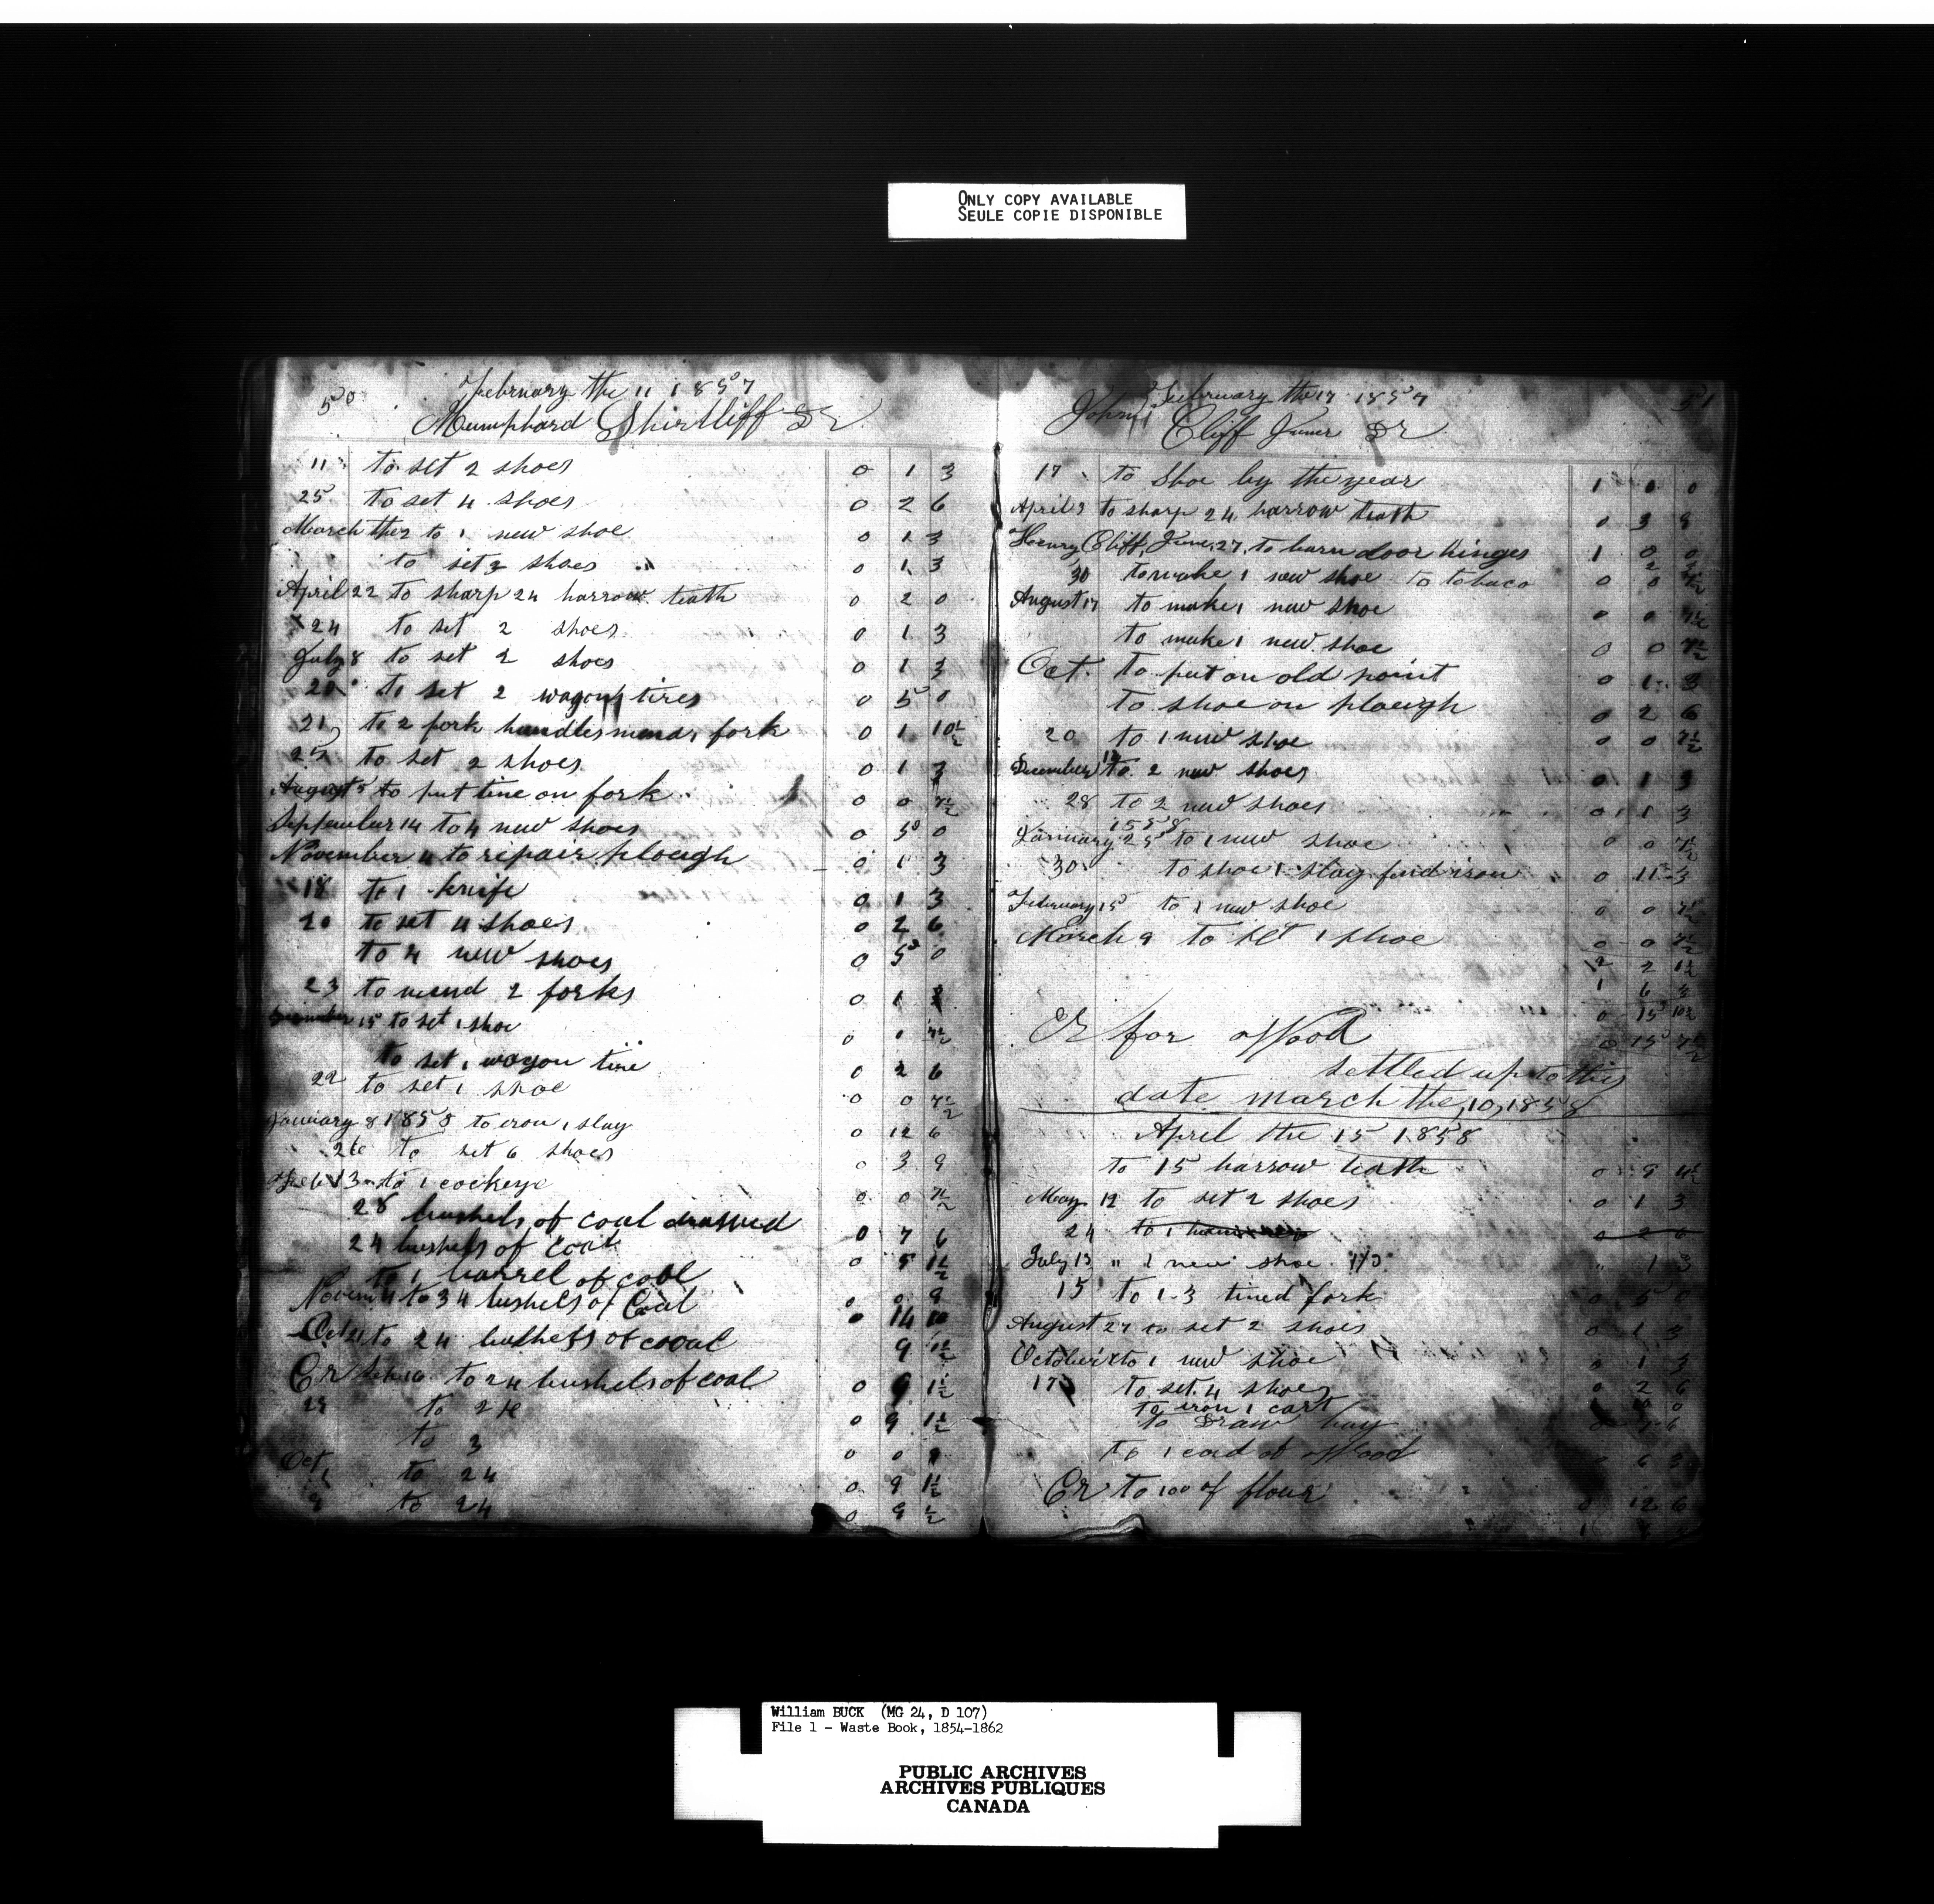 ONLY COPY AVAILABLE
SEULE COPIE DISPONIBLE
50
February the 11 1857
Mumphard Shirtliff Dr
11 to set 2 shoes 0 1 3
25 to set 4 shoes 0 2 6
March the 2 to 1 new shoe 0 1 3
to set 2 shoes 0 1 3
April 22 to sharp 24 harrow teath 0 2 0
24 to set 2 shoes 0 1 3
July 8 to set 2 shoes 0 1 3
20 to set 2 wagon tires 0 5 0
21 to 2 fork handles mend 1 fork 0 1 10½
25 to set 2 shoes 0 1 3
August 5 to put tine on fork 0 0 7½
September 14 to 4 new shoes 0 5 0
November 4 to repair plough 0 1 3
18 to 1 knife 0 1 3
20 to set 4 shoes 0 2 6
to 4 new shoes 0 5 0
23 to mend 2 forks 0 1 3
December 15 to set 1 shoe 0 0 7½
to set 1 wagon tire 0 2 6
22 to set 1 shoe 0 0 7½
January 8 1858 to iron 1 slay 0 12 6
26 to set 6 shoes 0 3 9
Feb 13 to 1 cockeye 0 0 7½
28 bushels of coal 0 7 6
24 bushels of Coal 0 9 1½
to 1 barrel of coal 0 0 9
Novem 4 to 34 bushels of Coal 0 14 10
Oct 21 to 24 bushels of cooal 9 1½
Cr Sep 16 to 24 bushels of coal 0 9 1½
29 to 24 0 9 1½
to 3 0 0 9
Oct 1 to 24 0 9 1½
9 to 24 0 9 ½
51
February the 17 1857
John
Cliff Juner Dr
17 to Shoe by the year 1 1 0
April 9 to sharp 24 harrow teath 0 3 9
Henry Cliff, June, 27, to barn door hinges 1 0 0
30 to make 1 new shoe to tobaco 0 0 7½
August 17 to make 1 new shoe 0 0 7½
to make 1 new shoe 0 0 7½
Oct. to put on old point 0 1 3
to shoe on plough 0 2 6
20 to 1 new shoe 0 0 7½
December 12 to 2 new shoes 0 1 3
28 to 2 new shoes 0 1 3
1858
January 25 to 1 new shoe 0 0 7½
30 to shoe 1 slay find iron 0 11 3
February 15 to 1 new shoe 0 0 7½
March 9 to set 1 shoe 0 0 7½
2 2 1½
1 6 3
0 15 10½
Cr for Wood 0 15 7½
settled up to this
date march the, 10, 1858
April the 15 1858
to 15 harrow teath 0 9 4½
May 12 to set 2 shoes 0 1 3
24 to 1 0 2 6
July 13 " 1 new shoe 1/3 " 1 3
15 to 1-3 tined fork 0 5 0
August 27 to set 2 shoes 0 1 3
October to 1 new shoe 0 1 3
17 to set 4 shoes 0 2 6
to iron 1 cart 10 0
to Draw hay 0 7 6
to 1 cord of Wood 0 6 3
Cr to 100 of flour 0 12 6
William BUCK (MG 24, D 107)
File 1 - Waste Book, 1854-1862
PUBLIC ARCHIVES
ARCHIVES PUBLIQUES
CANADA